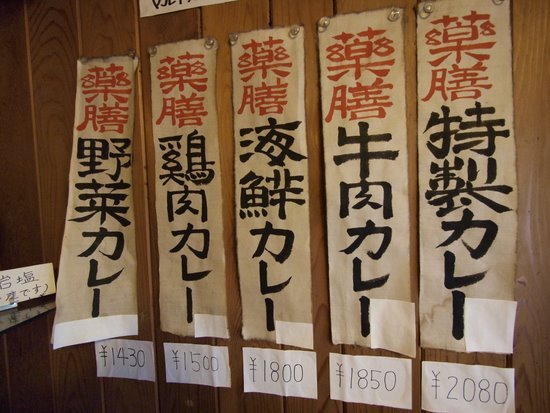 藥膳特製カレー
¥2080
藥膳牛肉カレー
¥1850
藥膳海鮮カレー
¥1800
藥膳鶏肉カレー
¥1500
藥膳野菜カレー
¥1430
岩塩
です)